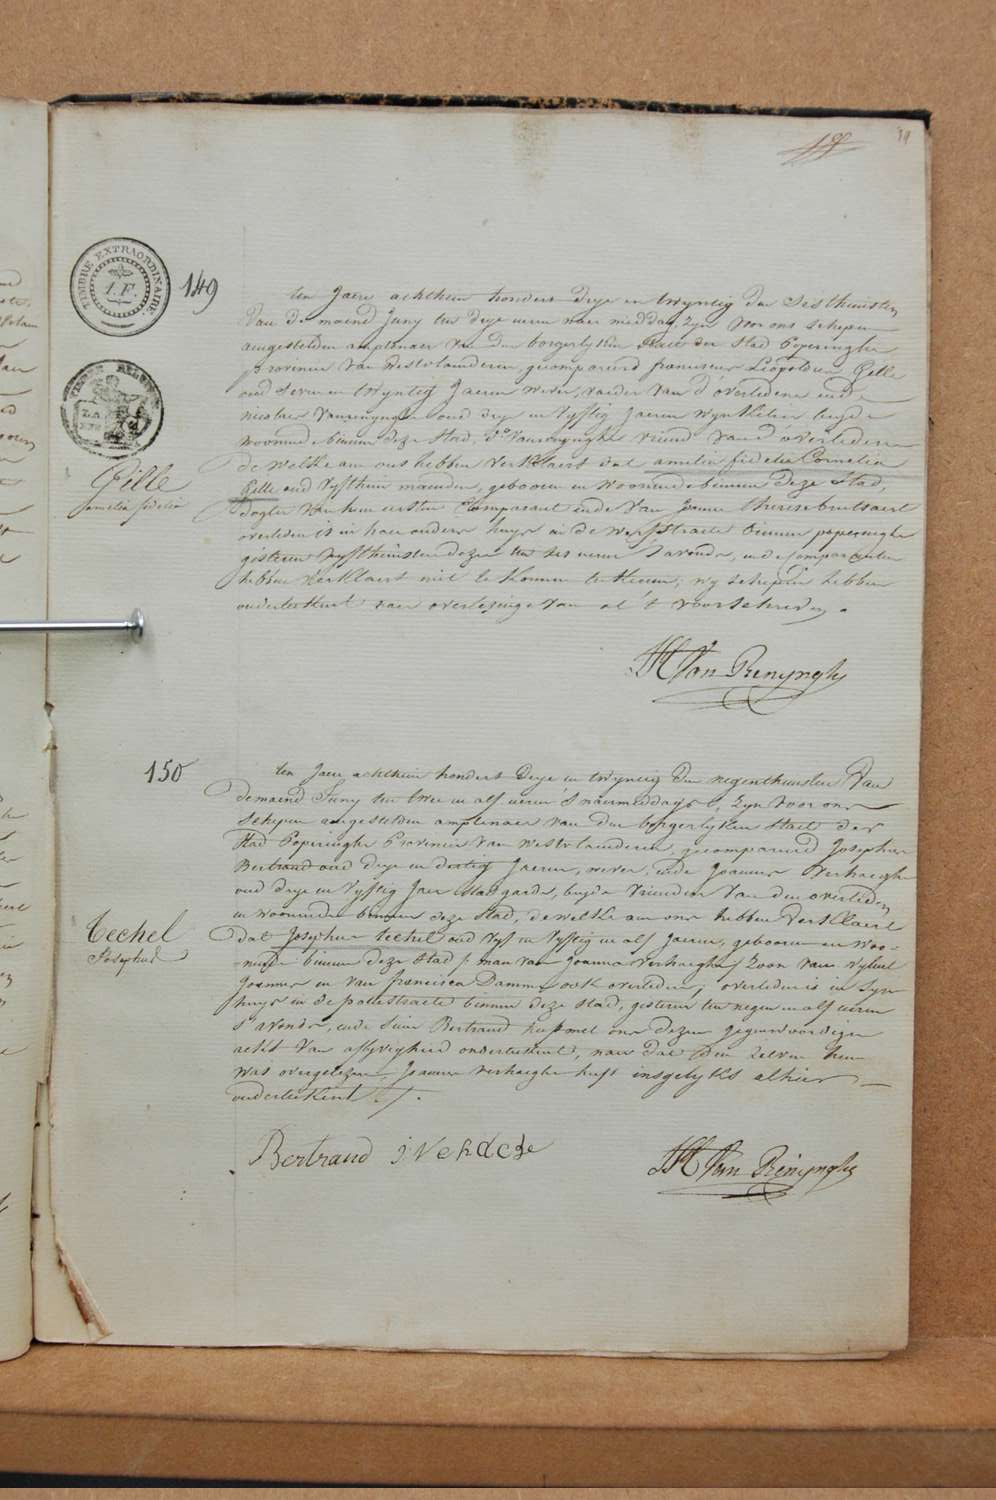 39
TIMBRE EXTRAORDINAIRE
1.F.
149
ten Jaere achthien hondert drye en twyntig den Sesthiensten
van de maend Juny ten drye ueren naer middag, zyn voor ons schepen
aengestelden amptenaer van den borgerlyken staet der stad Poperinghe
provincie van westvlaenderen, gecompareerd franciscus Leopoldus Gille
oud seven en twyntig Jaeren wever, vaeder van d'overledene ende
nicolaes vanrenynghe oud drye en vyftig Jaeren beyde
woonende binnen deze stad, vanrenynghe vriend van d'overledene
de welke aen ons hebben verklaert dat amelia fidelia Cornelia
Gille oud vyfthien maenden, gebooren en woonende binnen deze stad,
dogter van den eersten Comparant ende van Joanna therese
overleden is in haer ouders huys in de straete binnen poperinghe
gisteren vyfthiensten dezer ten ses ueren s'avonds, ende Comparanten
hebben verklaert niet te konnen teekenen, wy schepen hebben
onderteekent naer overlezinge van al 't voorschreven.
Gille
amelia fidelia
H Van Renynghe
150
ten Jaere achthien hondert drye en twyntig den negenthiensten van
de maend Juny ten twee en alf ueren s'naermiddags, zyn voor ons
schepen aengestelden amptenaer van den borgerlyken staet der
stad Poperinghe Provincie van westvlaenderen, gecompareerd Josephus
Bertrand oud drye en dertig Jaeren, wever, ende Joannes verhaeghe
oud drye en vyftig Jaer stadsgarde, beyde vrienden van den overleden
en woonende binnen deze stad, de welke aen ons hebben verklaert
dat Josephus Cechel oud vyf en vyftig en alf Jaeren, gebooren en woo-
nende binnen deze stad / man van Joanna verhaeghe / zoon van wylent
Joannes en van francisca Damme ook overleden, overleden is in syn
huys in de straete binnen deze stad, gisteren ten negen en alf ueren
s'avonds, ende Bertrand heeft met ons dezen gegenwoordigen
act van aflyvigheid onderteekent, naer dat den zelven hem
was overgelezen, Joannes verhaeghe heeft insgelyks alhier
onderteekent ./.
Cechel
Josephus
Bertrand
H Van Renynghe